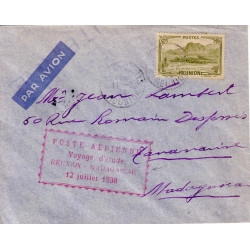 PAR AVION
POSTES
REUNION
Mr Jean Lambert
50 Rue Romain Desfossés
Tananarive
Madagascar
POSTE AERIENNE
Voyage d'étude
REUNION - MADAGASCAR
12 juillet 1938